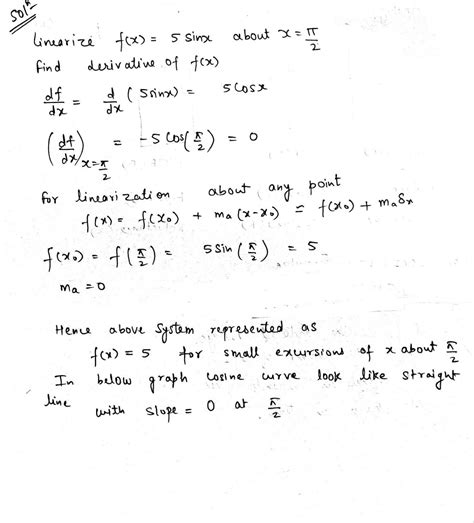 Soln
Linearize f(x) = 5 sinx about x = π/2
find derivative of f(x)
df/dx = d/dx (5sinx) = 5 cosx
(df/dx)x=π/2 = -5 cos(π/2) = 0
for linearization about any point
f(x) = f(x₀) + ma (x-x₀) = f(x₀) + ma δx
f(x₀) = f(π/2) = 5 sin (π/2) = 5
ma = 0
Hence above system represented as
f(x) = 5 for small excursions of x about π/2
In below graph cosine curve look like straight
line with slope = 0 at π/2